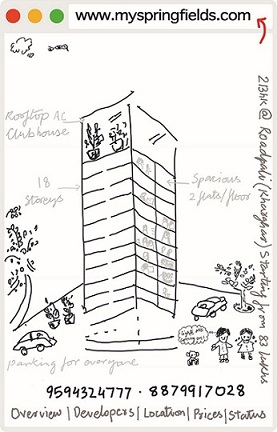 www.myspringfields.com
Rooftop AC
Clubhouse
18
Storeys
Spacious
2 flats/floor
2BHK @ Roadpali (Kharghar) Starting from 83 lakhs
parking for everyone
9594324777 · 8879917028
Overview | Developers | Location | Prices | Status